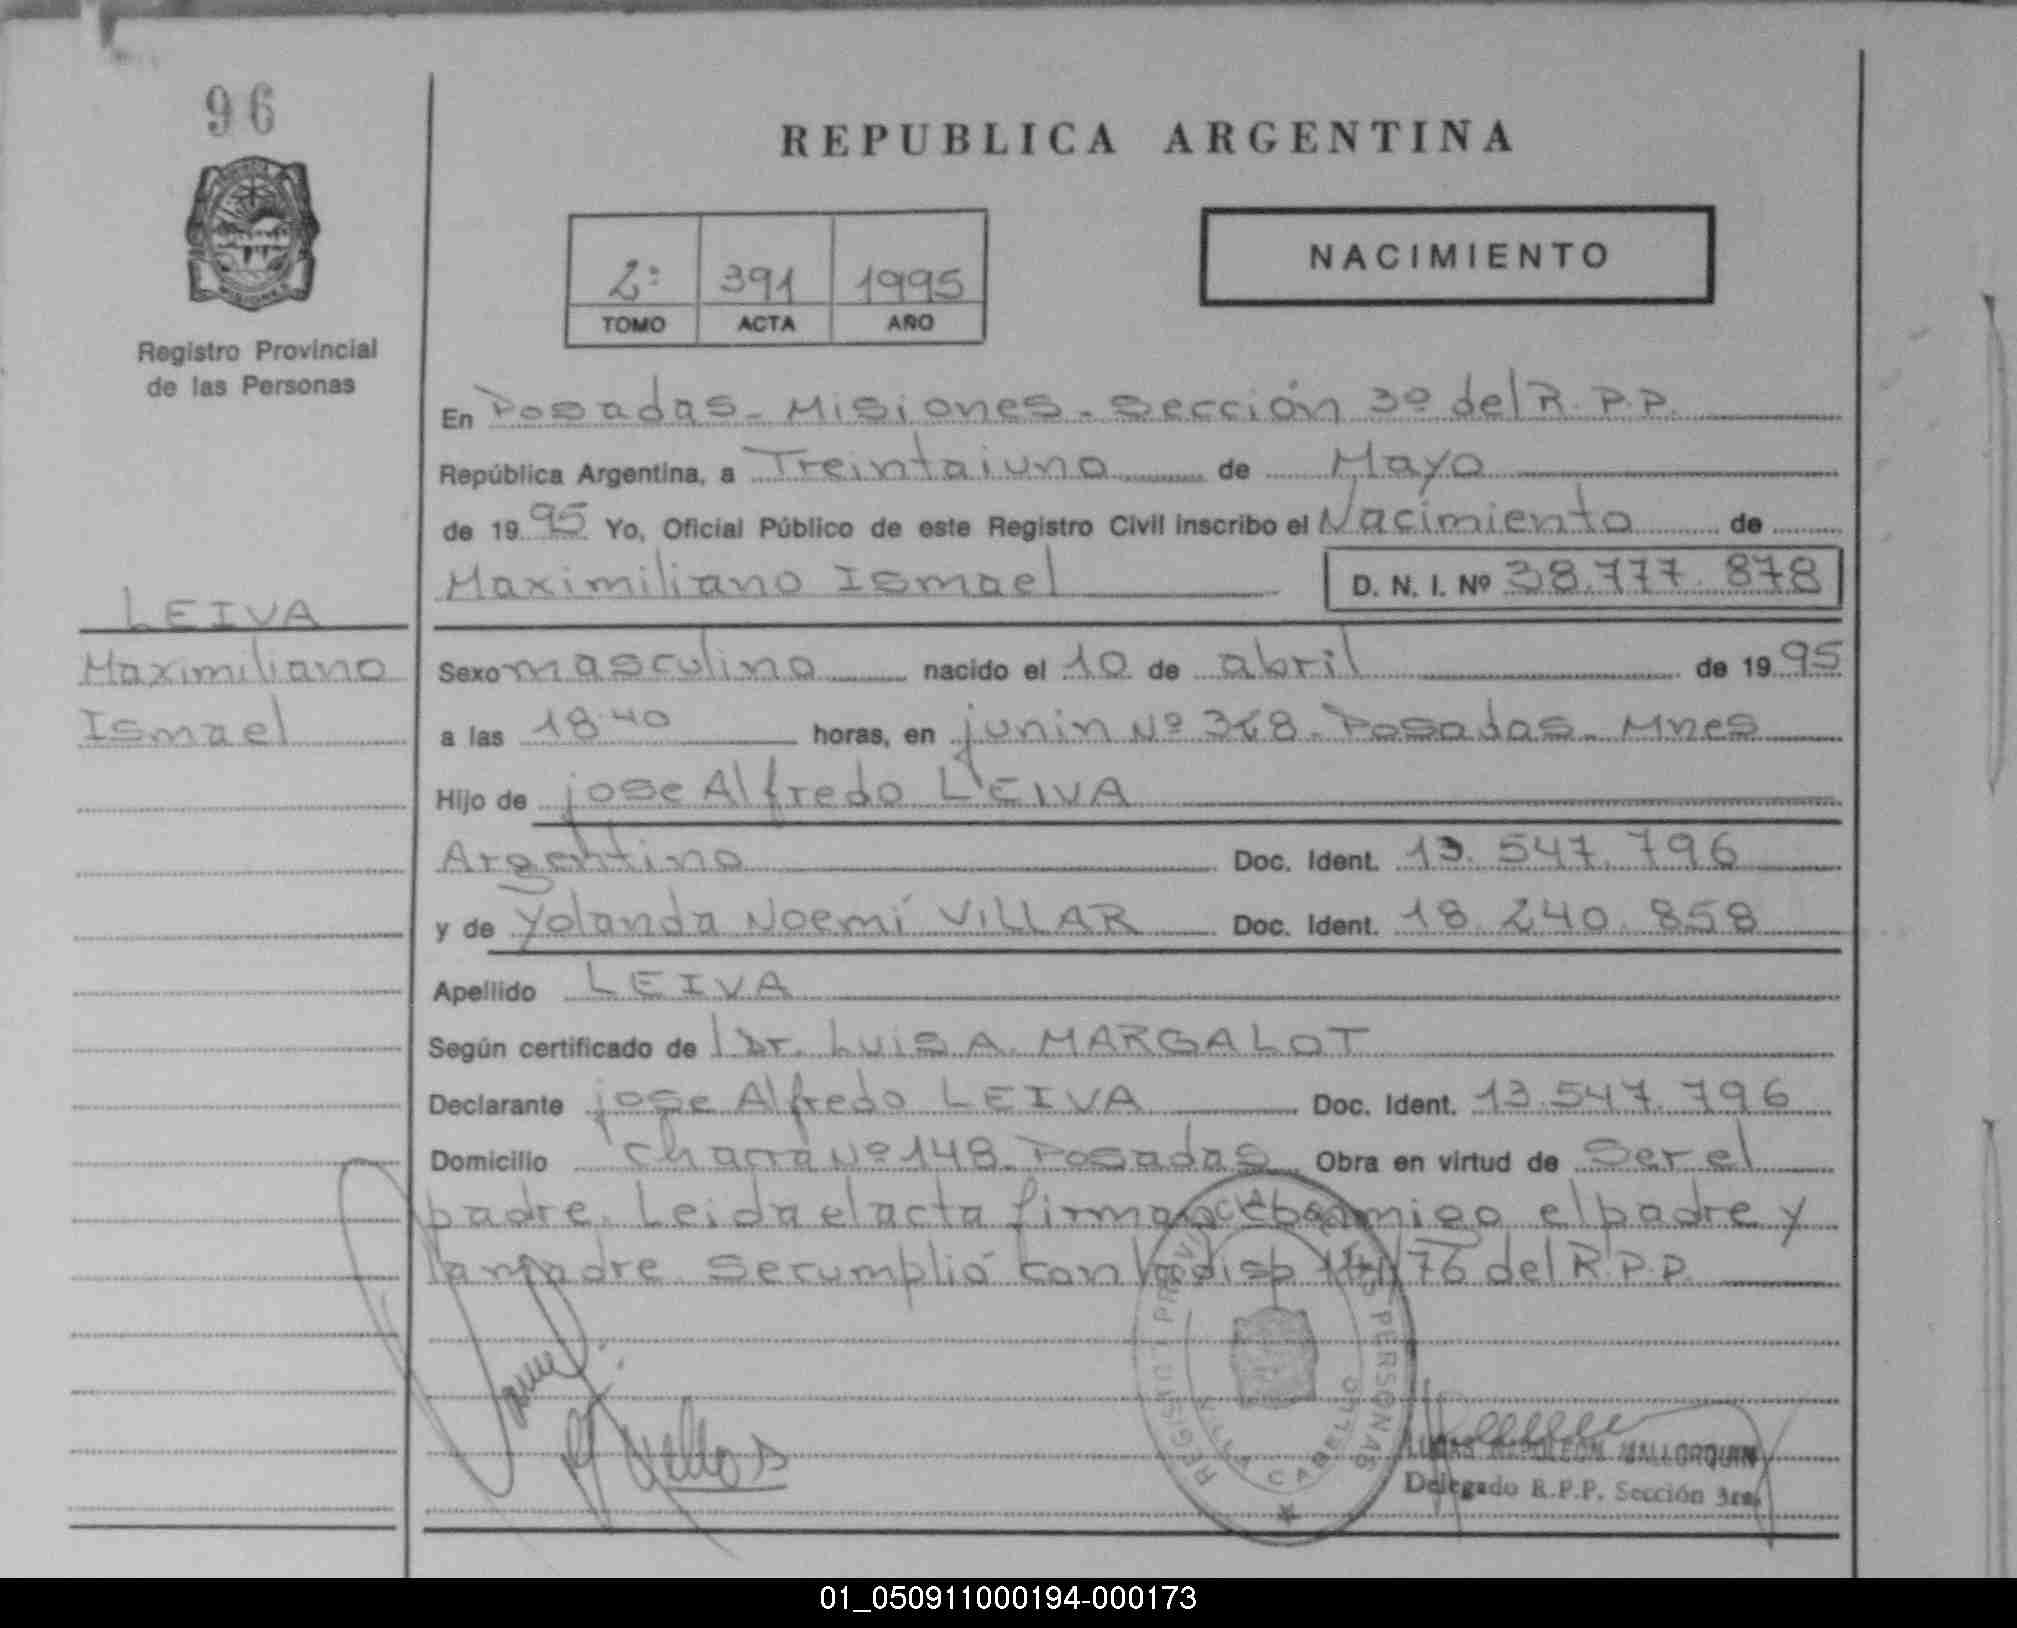 96
REPUBLICA ARGENTINA
NACIMIENTO
2º 391 1995
TOMO ACTA AÑO
Registro Provincial
de las Personas
En Posadas - Misiones - Sección 3º del R.P.P.
República Argentina, a Treintaiuno de Mayo
de 1995 Yo, Oficial Público de este Registro Civil inscribo el Nacimiento de
Maximiliano Ismael D. N. I. Nº 38.777.878
LEIVA
Maximiliano
Ismael
Sexo masculino nacido el 10 de abril de 1995
a las 18.40 horas, en junin Nº 368 - Posadas - Mnes
Hijo de jose Alfredo LEIVA
Argentino Doc. Ident. 13.547.796
y de Yolanda Noemí VILLAR Doc. Ident. 18.240.858
Apellido LEIVA
Según certificado de l Dr. LUIS A. MARGALOT
Declarante jose Alfredo LEIVA Doc. Ident. 13.547.796
Domicilio chacra Nº 148 Posadas Obra en virtud de Ser el
padre. Leida el acta firman conmigo el padre y
la madre. Se cumplió con la disp 141/76 del R.P.P.
REGISTRO PROVINCIAL DE LAS PERSONAS
VILLA CABELLO
LUCAS NAPOLEON MALLORQUIN
Delegado R.P.P. Sección 3ra.
01_050911000194-000173